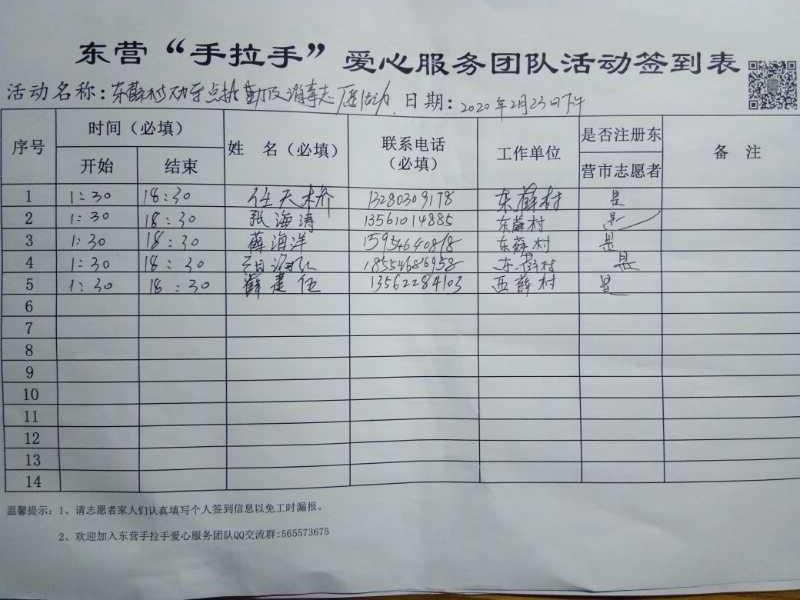 东营“手拉手”爱心服务团队活动签到表
活动名称：东薛村 执勤及消毒志愿活动 日期：2020年2月23日下午
序号 时间（必填） 姓 名（必填） 联系电话（必填） 工作单位 是否注册东营市志愿者 备 注
开始 结束
1 1:30 18:30 任天桥 13280309178 东薛村 是
2 1:30 18:30 张海涛 13561014885 东薛村 是
3 1:30 18:30 薛海洋 东薛村 是
4 1:30 18:30 东薛村 是
5 1:30 18:30 薛建伍 13562284103 西薛村 是
6
7
8
9
10
11
12
13
14
温馨提示：1、请志愿者家人们认真填写个人签到信息以免工时漏报。
2、欢迎加入东营手拉手爱心服务团队QQ交流群:565573675